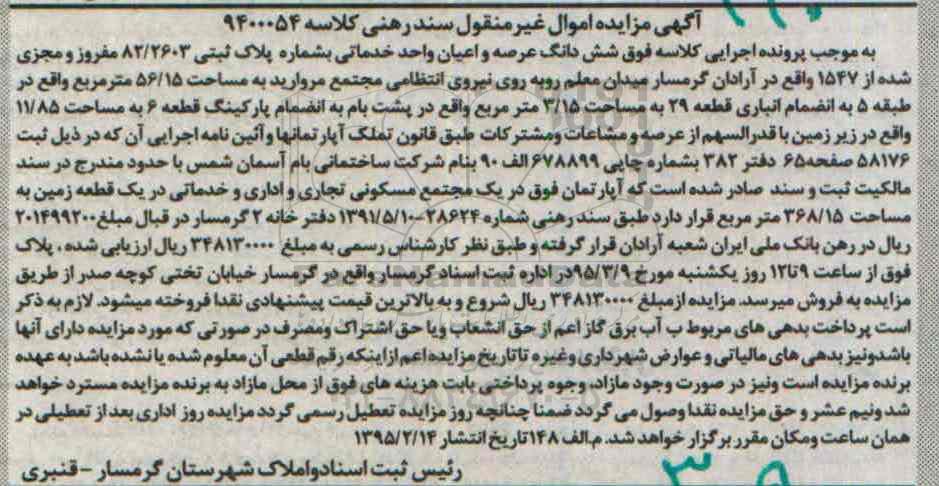 آگهی مزایده اموال غیر منقول سند رهنی کلاسه ۹۴۰۰۰۵۴
به موجب پرونده اجرایی کلاسه فوق شش دانگ عرصه و اعیان واحد خدماتی بشماره پلاک ثبتی ۸۲/۲۶۰۳ مفروز و مجزی
شده از ۱۵۴۷ واقع در آرادان گرمسار میدان معلم روبه روی نیروی انتظامی مجتمع مروارید به مساحت ۵۶/۱۵ مترمربع واقع در
طبقه ۵ به انضمام انباری قطعه ۲۹ به مساحت ۳/۱۵ متر مربع واقع در پشت بام به انضمام پارکینگ قطعه ۶ به مساحت ۱۱/۸۵
واقع در زیر زمین با قدرالسهم از عرصه و مشاعات ومشترکات طبق قانون تملک آپارتمانها وآئین نامه اجرایی آن که در ذیل ثبت
۵۸۱۷۶ صفحه۶۵ دفتر ۳۸۲ بشماره چاپی ۶۷۸۸۹۹ الف ۹۰ بنام شرکت ساختمانی بام آسمان شمس با حدود مندرج در سند
مالکیت ثبت و سند صادر شده است که آپارتمان فوق در یک مجتمع مسکونی تجاری و اداری و خدماتی در یک قطعه زمین به
مساحت ۳۶۸/۱۵ متر مربع قرار دارد طبق سند رهنی شماره ۲۸۶۲۴-۱۳۹۱/۵/۱۰ دفتر خانه ۲ گرمسار در قبال مبلغ۲۰۱۴۹۹۲۰۰
ریال در رهن بانک ملی ایران شعبه آرادان قرار گرفته و طبق نظر کارشناس رسمی به مبلغ ۳۴۸۱۳۰۰۰۰ ریال ارزیابی شده ، پلاک
فوق از ساعت ۹تا۱۲ روز یکشنبه مورخ ۹۵/۳/۹در اداره ثبت اسناد گرمسار واقع در گرمسار خیابان تختی کوچه صدر از طریق
مزایده به فروش میرسد. مزایده از مبلغ ۳۴۸۱۳۰۰۰۰ ریال شروع و به بالاترین قیمت پیشنهادی نقدا فروخته میشود. لازم به ذکر
است پرداخت بدهی های مربوط ب آب برق گاز اعم از حق انشعاب ویا حق اشتراک ومصرف در صورتی که مورد مزایده دارای آنها
باشدونیز بدهی های مالیاتی و عوارض شهرداری وغیره تاتاریخ مزایده اعم ازاینکه رقم قطعی آن معلوم شده یا نشده باشد به عهده
برنده مزایده است ونیز در صورت وجود مازاد، وجوه پرداختی بابت هزینه های فوق از محل مازاد به برنده مزایده مسترد خواهد
شد ونیم عشر و حق مزایده نقدا وصول می گردد ضمنا چنانچه روز مزایده تعطیل رسمی گردد مزایده روز اداری بعد از تعطیلی در
همان ساعت ومکان مقرر برگزار خواهد شد. م.الف ۱۴۸تاریخ انتشار ۱۳۹۵/۲/۱۴
رئیس ثبت اسنادواملاک شهرستان گرمسار - قنبری